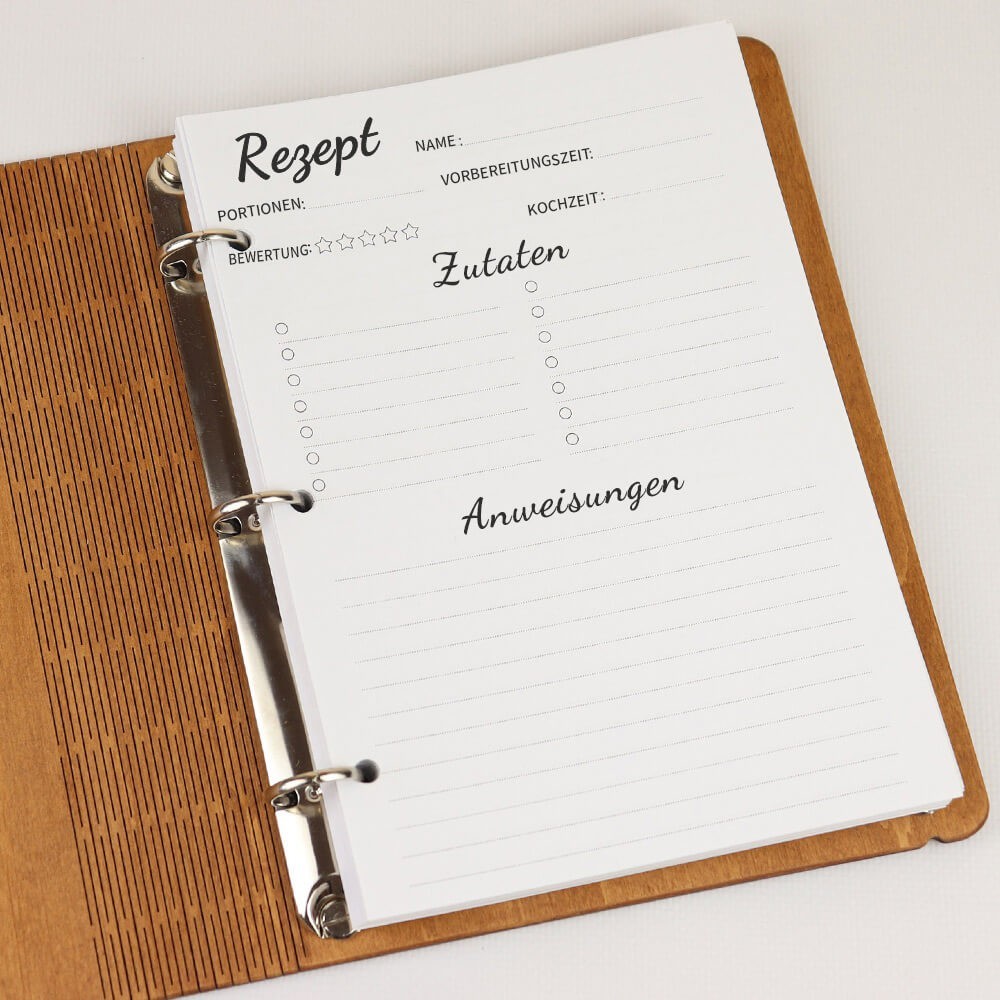 Rezept
NAME:
PORTIONEN:
VORBEREITUNGSZEIT:
BEWERTUNG:
KOCHZEIT:
Zutaten
Anweisungen